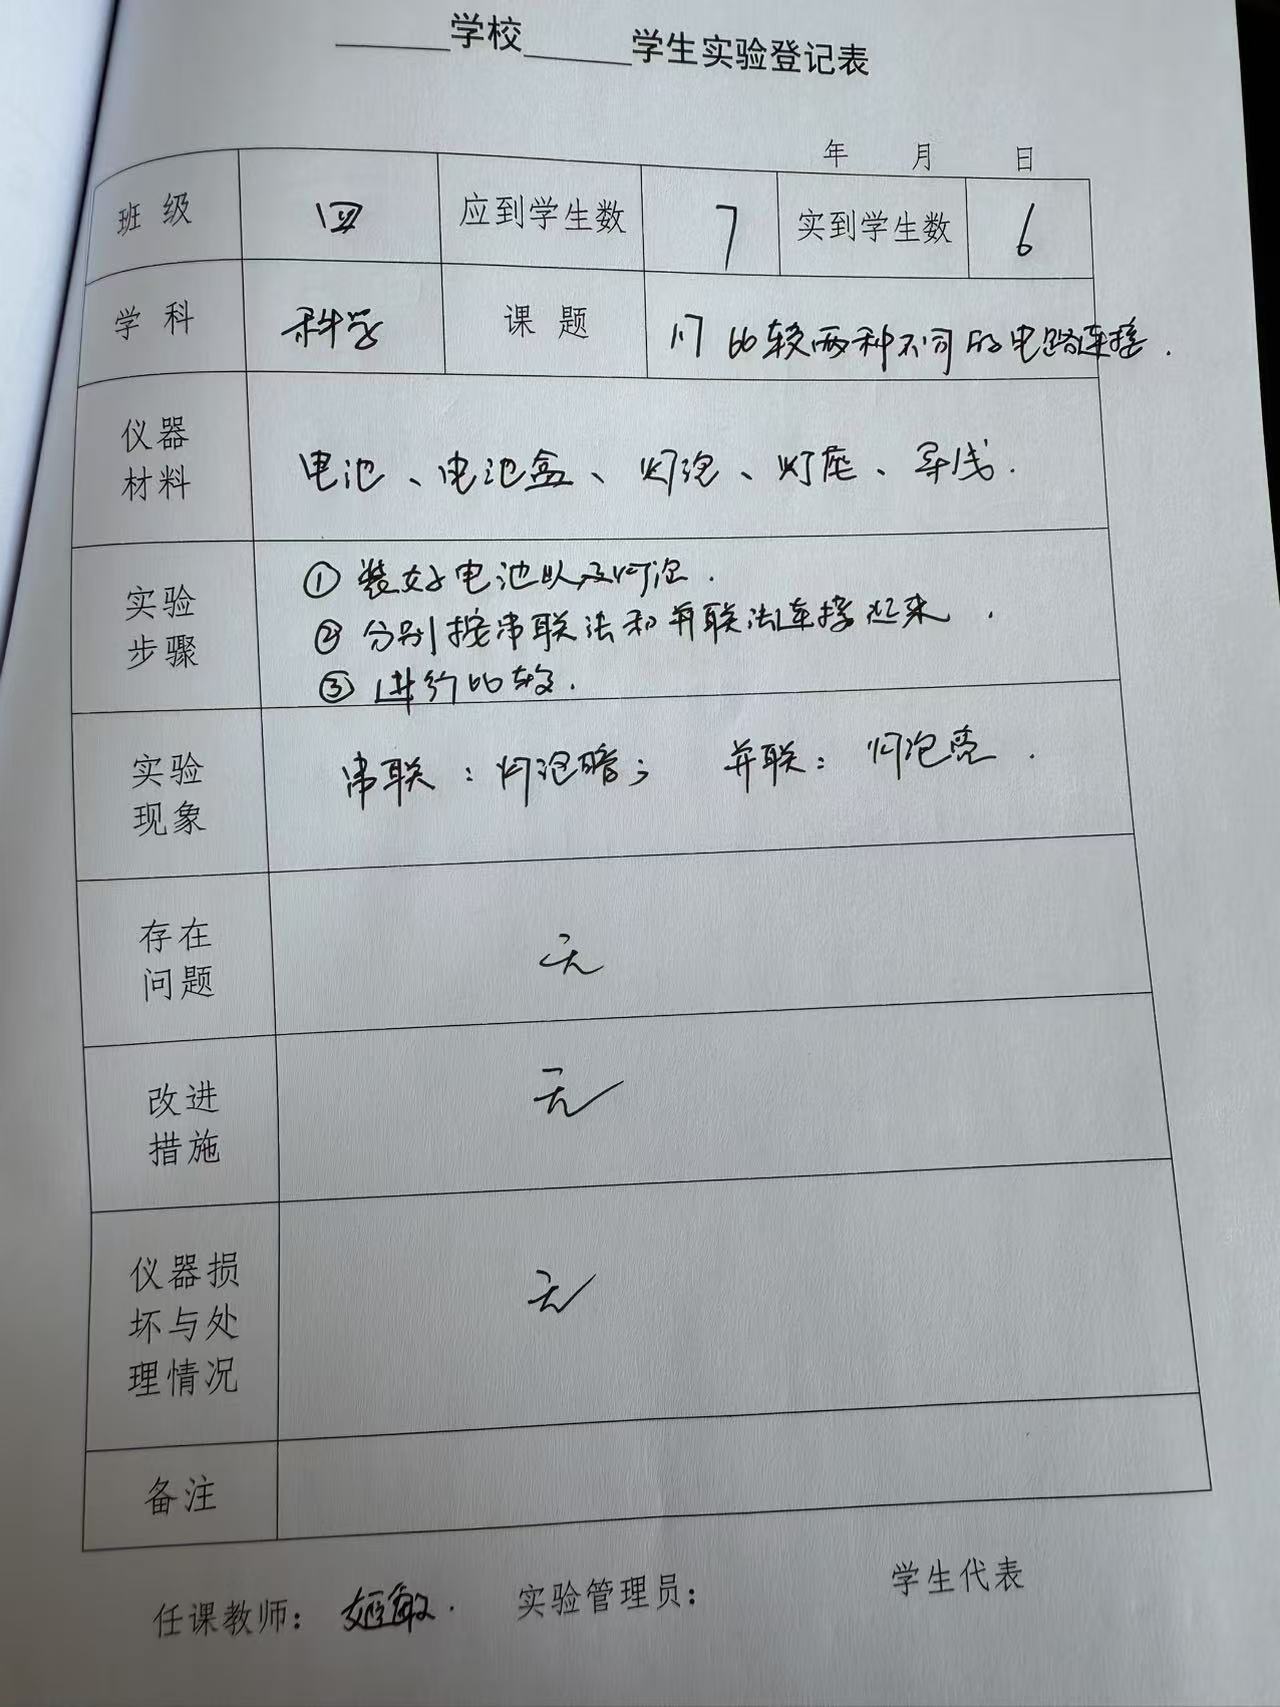 ______学校______学生实验登记表
年 月 日
班级 四 应到学生数 7 实到学生数 6
学科 科学 课题 17 比较两种不同的电路连接.
仪器
材料
电池、电池盒、灯泡、灯座、导线.
实验
步骤
①装好电池以及灯泡.
②分别按串联法和并联法连接起来.
③进行比较.
实验
现象
串联:灯泡暗; 并联:灯泡亮.
存在
问题
无
改进
措施
无
仪器损
坏与处
理情况
无
备注
任课教师: 敏. 实验管理员: 学生代表